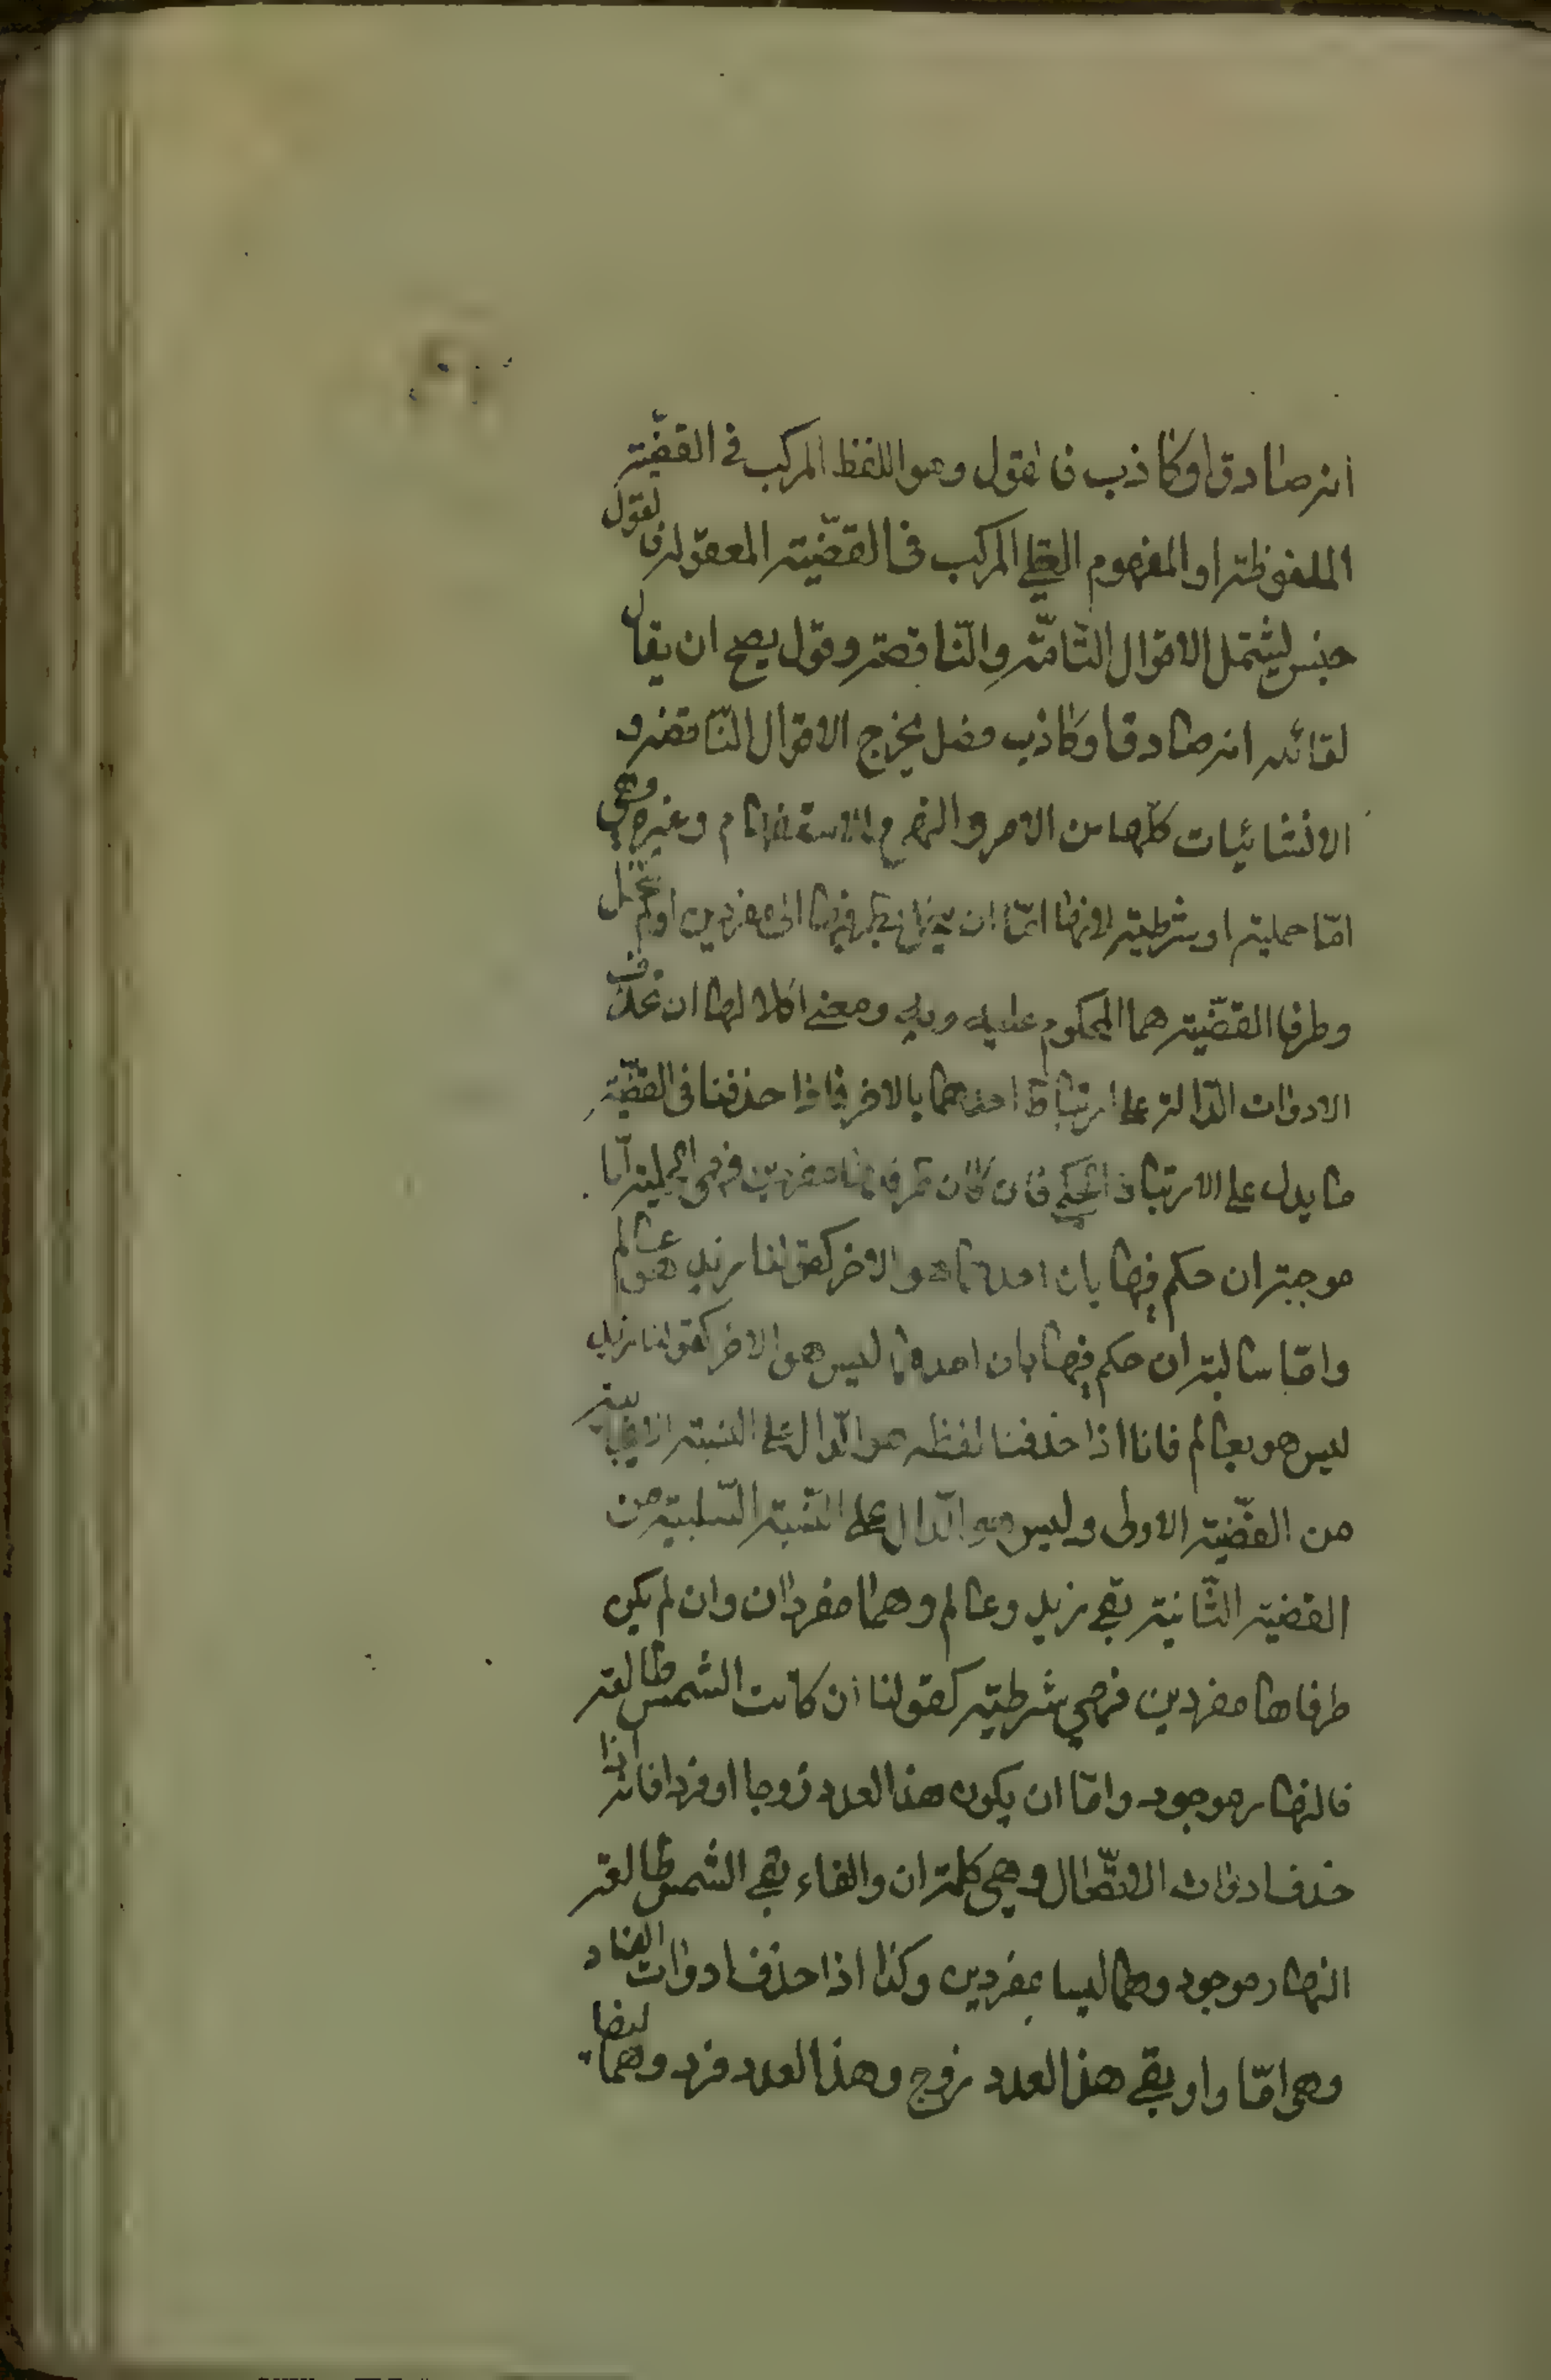 انه صادق او كاذب فالقول وهو اللفظ المركب فى القضيّة
الملفوظة او المفهوم العقلي المركب فى القضيّة المعقولة فالقول
جنس ليشتمل الاقوال التّامّة والنّاقصة وقول يصح ان يقال
لقائله انه صادق او كاذب فصل يخرج الاقوال النّاقصة و
الانشائيات كلّها من الامر والنهى والاستفهام وغيره وهى
امّا حملية او شرطية لانها امّا ان ينحل بطرفيها الى مفردين او لم تنحل
وطرفا القضّية هما المحكوم عليه وبه ومعنى انحلالها ان تحذف
الادوات الدّالة على ارتباط احدهما بالاخر فاذا حذفنا فى القضيّة
ما يدل على الارتباط الحكمى فان كان طرفاها مفردين فهى الحملية امّا
موجبة ان حكم فيها بان احدهما هو الاخر كقولنا زيد هو عالم
وامّا سالبة ان حكم فيها بان احدهما ليس هو الاخر كقولنا زيد
ليس هو بعالم فانا اذا حذفنا لفظه هو الدّال على النسبة الايجابية
من القضّية الاولى وليس هو الدّال على النّسبة السّلبية من
القضية الثّانية بقى زيد وعالم وهما مفردان وان لم يكن
طرفاها مفردين فهي شرطية كقولنا ان كانت الشمس طالعة
فالنهار موجود وامّا ان يكون هذا العدد زوجا او فردا فانه اذا
حذف ادوات الاتّصال وهي كلمة ان والفاء بقى الشمس طالعة
النهار موجود وهما ليسا بمفردين وكذا اذا حذف ادوات العناد
وهى امّا واو بقى هذا العدد زوج وهذا العدد فرد وهما ايضا